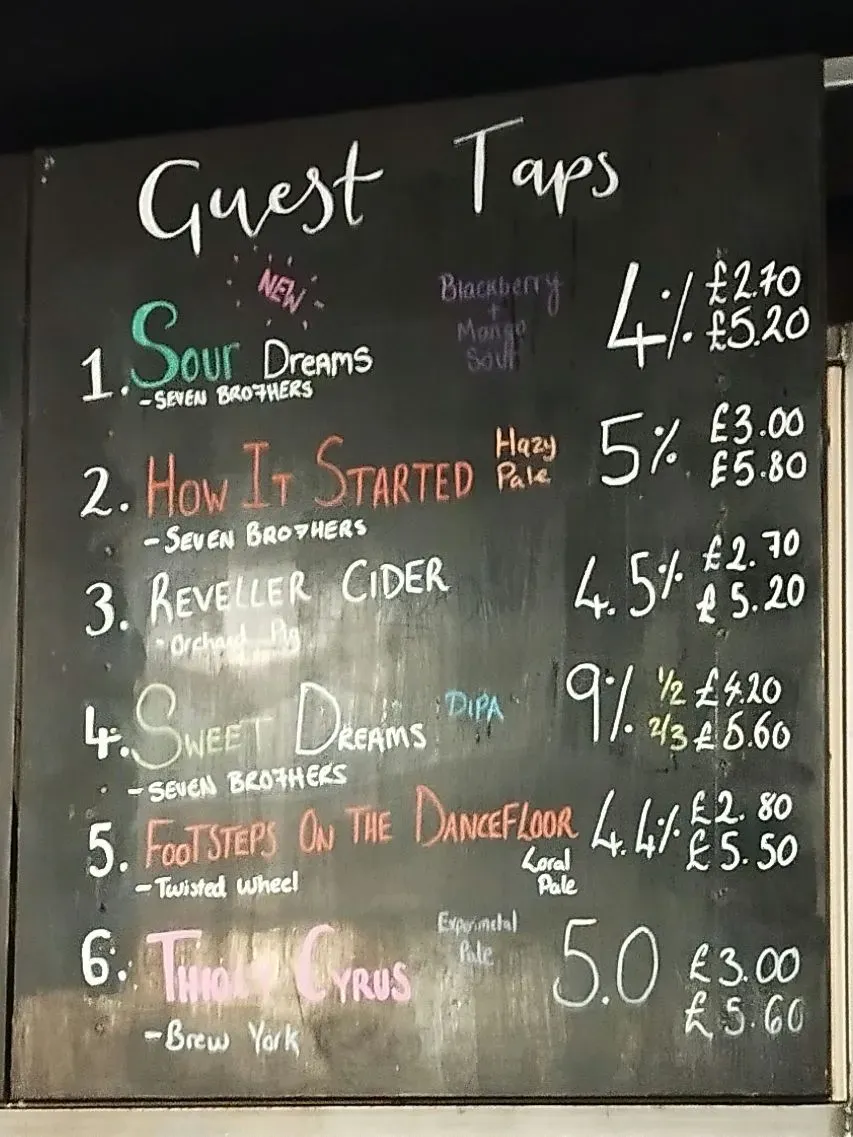 Guest Taps
NEW
1. Sour Dreams Blackberry + Mango Sour 4% £2.70 £5.20
- SEVEN BRO7HERS
2. How It Started Hazy Pale 5% £3.00 £5.80
- SEVEN BRO7HERS
3. Reveller Cider 4.5% £2.70 £5.20
- Orchard Pig
4. Sweet Dreams DIPA 9% 1/2 £4.20 2/3 £5.60
- SEVEN BRO7HERS
5. Footsteps On The Dancefloor Loral Pale 4.4% £2.80 £5.50
- Twisted Wheel
6. Cyrus Experimetal Pale 5.0 £3.00 £5.60
- Brew York